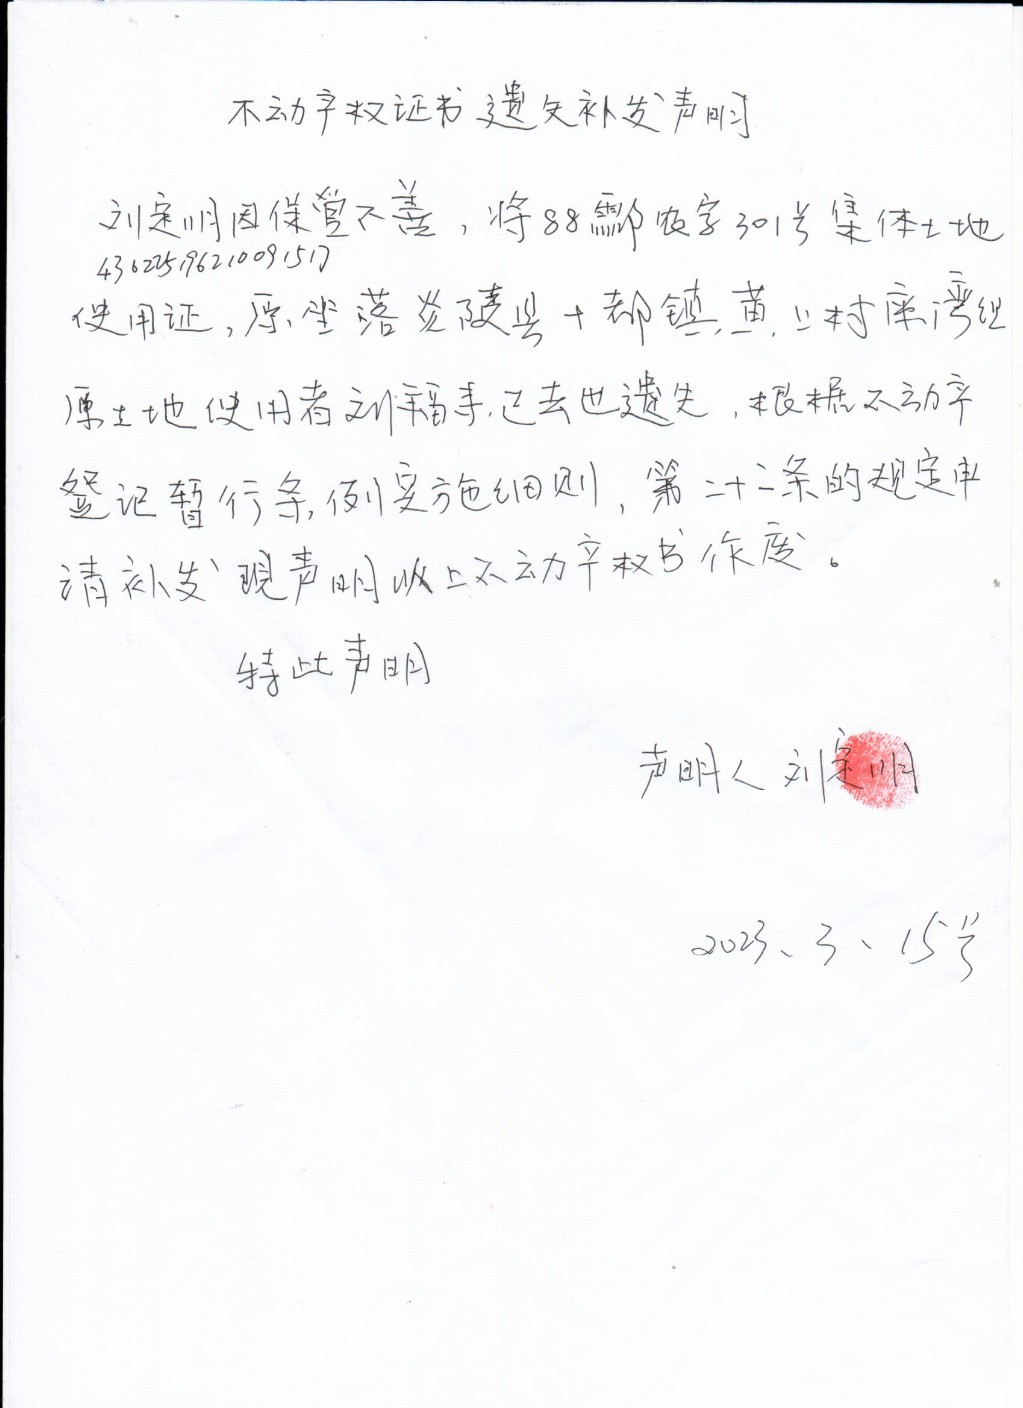 不动产权证书遗失补发声明
刘定明因保管不善，将88酃农字301号集体土地
430225196210091517
使用证，原坐落炎陵县十都镇黄上村庙湾组
原土地使用者刘福手已去世遗失，根据不动产
登记暂行条例实施细则，第二十二条的规定申
请补发现声明以上不动产权书作废。
特此声明
声明人刘定明
2023、3、15号